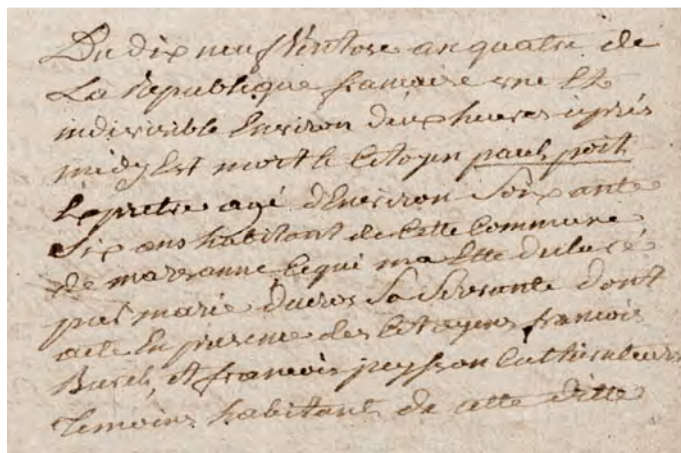 Du dix neuf Ventose an quatre de
La Republique francaise une Et
indivisible Environ deux heures après
midy Est mort le Citoyen paul, poit
Exprêtre agé dEnviron Soixante
Six ans habitant de Cette Commune
de marsanne Ce qui ma Ette declaré
par marie ducros Sa Servante dont
acte En presence des Citoyens francois
et francois peysson Cultivateurs
temoins habitant de cette ditte